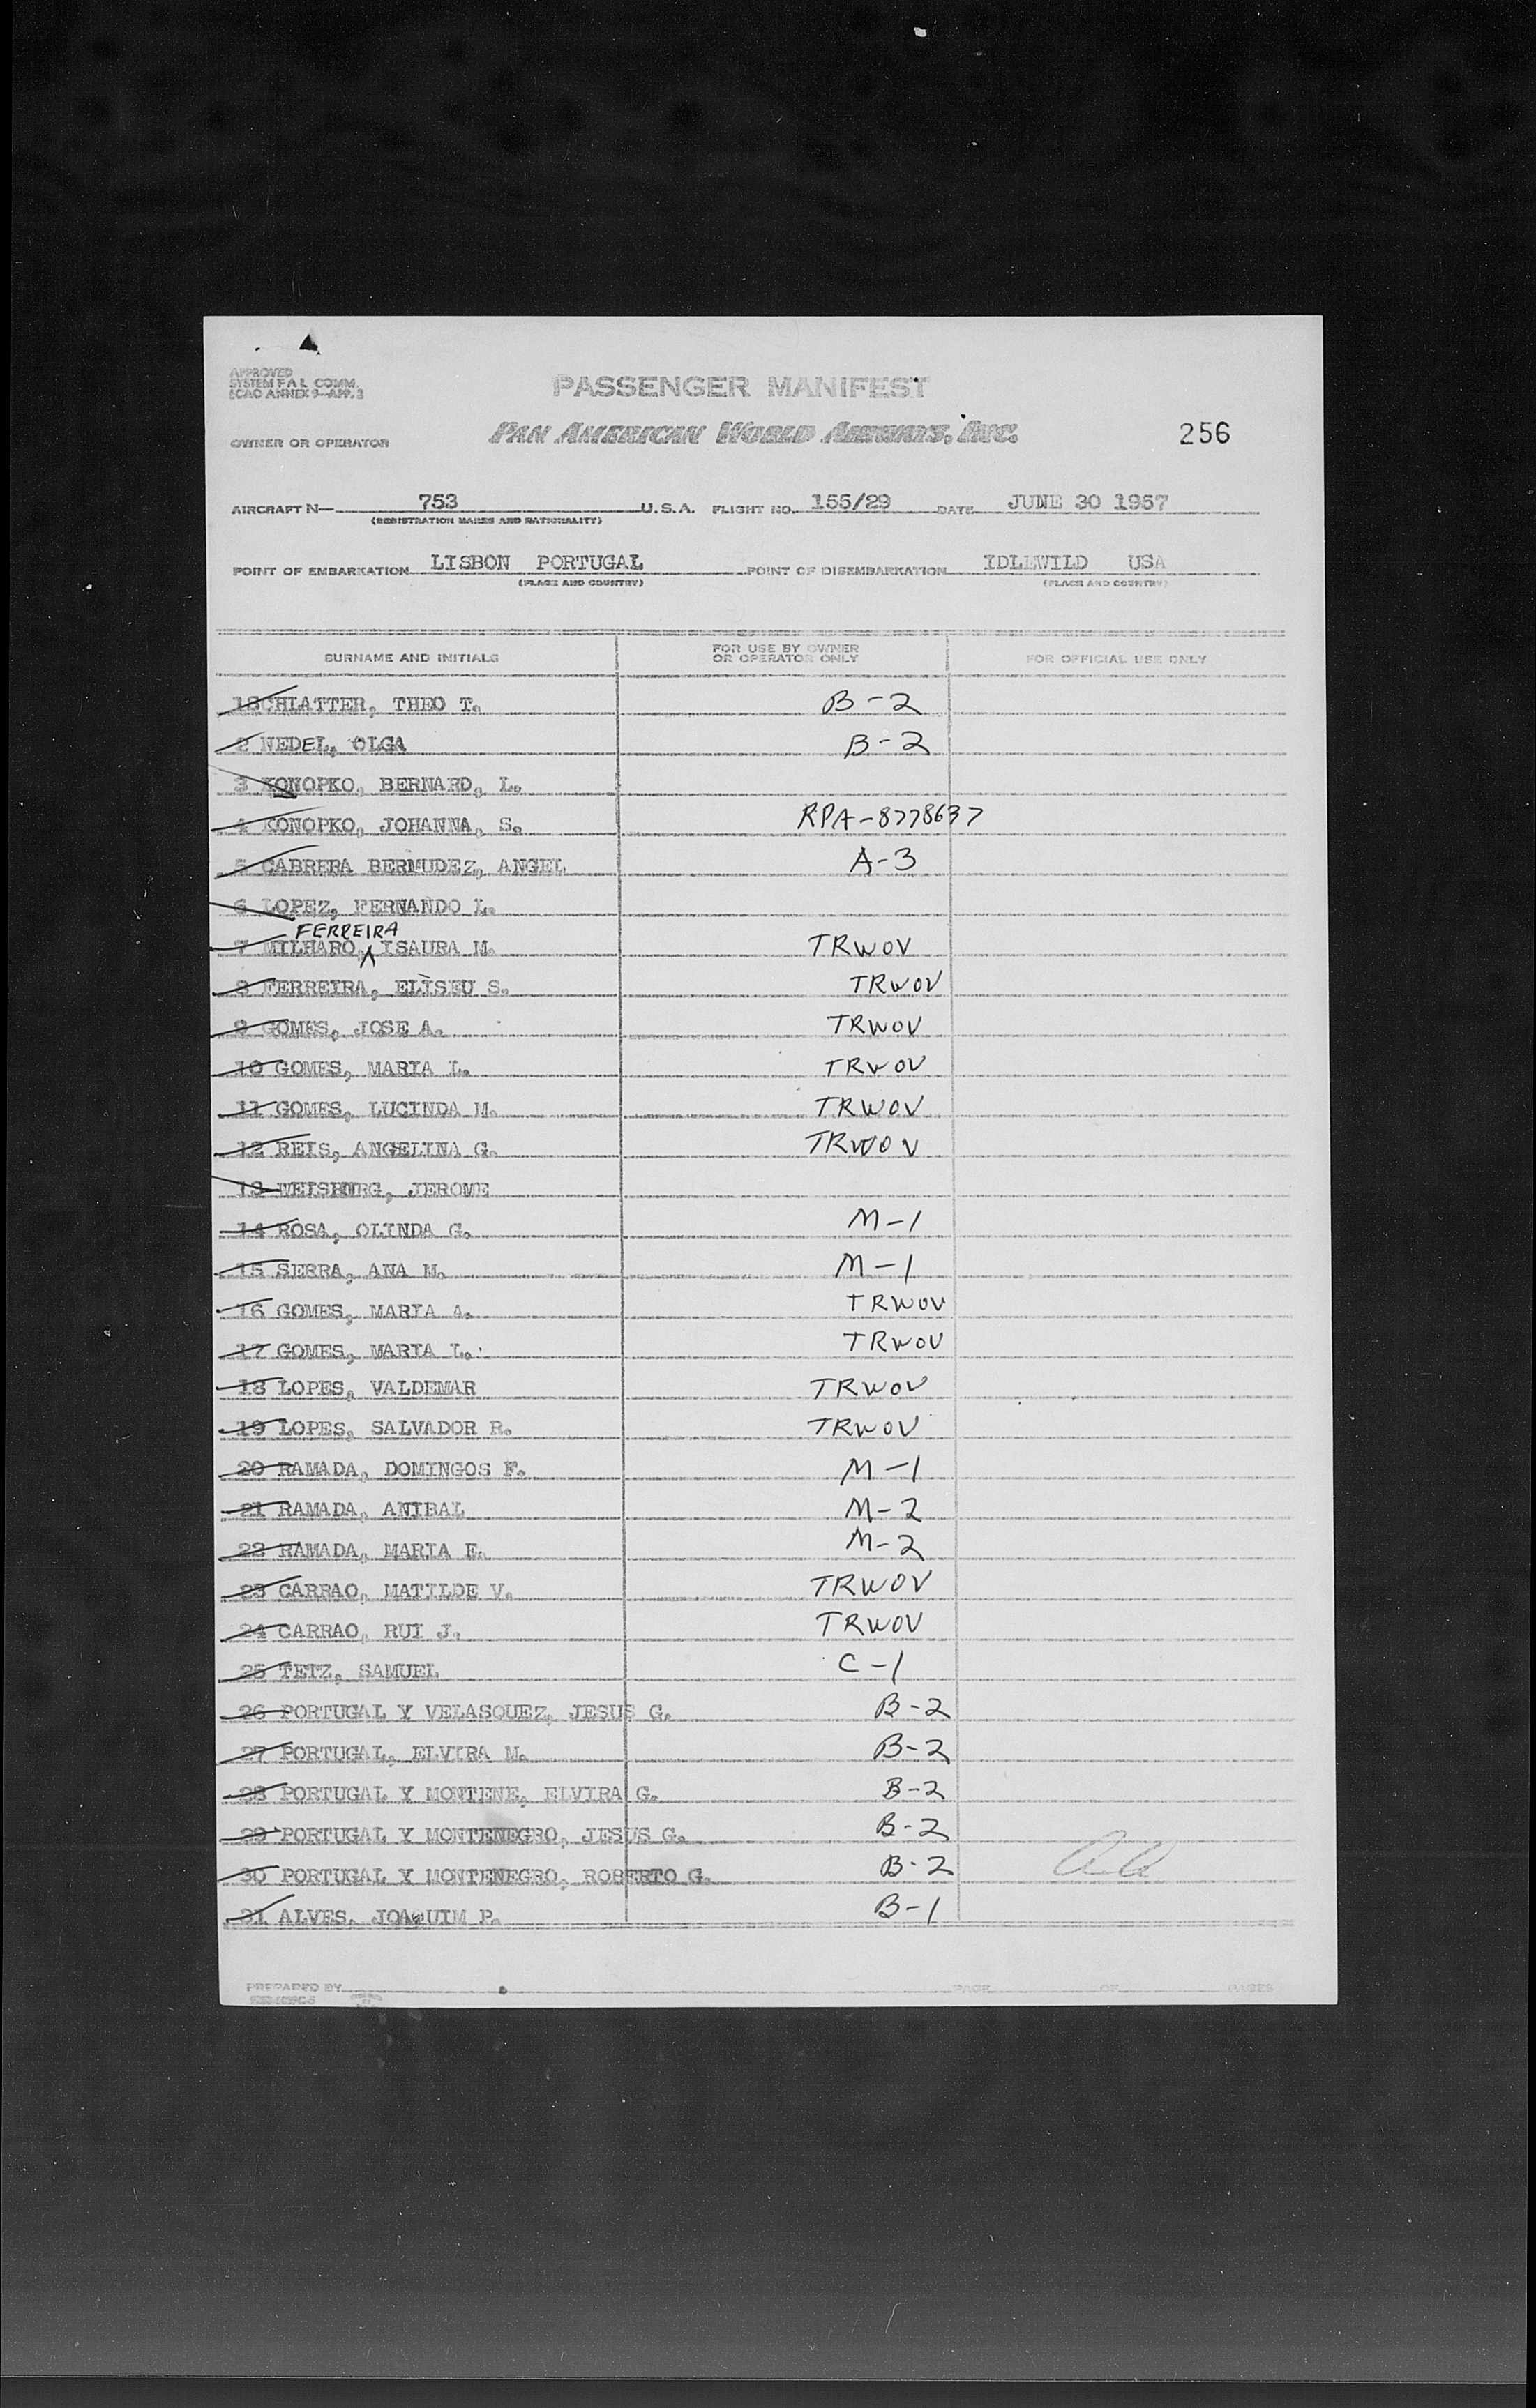 APPROVED
SYSTEM F A L COMM.
ICAO ANNEX 9-APP. 3
PASSENGER MANIFEST
OWNER OR OPERATOR PAN AMERICAN WORLD AIRWAYS, INC. 256
AIRCRAFT N— 753 U.S.A. FLIGHT NO. 155/29 DATE JUNE 30 1957
(REGISTRATION MARKS AND NATIONALITY)
POINT OF EMBARKATION LISBON PORTUGAL POINT OF DISEMBARKATION IDLEWILD USA
(PLACE AND COUNTRY) (PLACE AND COUNTRY)
SURNAME AND INITIALS FOR USE BY OWNER OR OPERATOR ONLY FOR OFFICIAL USE ONLY
1 SCHLATTER, THEO T. B-2
2 NEDEL, OLGA B-2
3 KONOPKO, BERNARD, L.
4 KONOPKO, JOHANNA, S. RPA-8778637
5 CABRERA BERMUDEZ, ANGEL A-3
6 LOPEZ, FERNANDO L.
FERREIRA
7 MILHARO, ISAURA M. TRWOV
8 FERREIRA, ELISEU S. TRWOV
9 GOMES, JOSE A. TRWOV
10 GOMES, MARIA L. TRWOV
11 GOMES, LUCINDA M. TRWOV
12 REIS, ANGELINA G. TRWOV
13 WEISBURG, JEROME
14 ROSA, OLINDA G. M-1
15 SERRA, ANA M. M-1
16 GOMES, MARIA A. TRWOV
17 GOMES, MARIA L. TRWOV
18 LOPES, VALDEMAR TRWOV
19 LOPES, SALVADOR R. TRWOV
20 RAMADA, DOMINGOS F. M-1
21 RAMADA, ANIBAL M-2
22 RAMADA, MARIA E. M-2
23 CARRAO, MATILDE V. TRWOV
24 CARRAO, RUI J. TRWOV
25 TETZ, SAMUEL C-1
26 PORTUGAL Y VELASQUEZ, JESUS G. B-2
27 PORTUGAL, ELVIRA M. B-2
28 PORTUGAL Y MONTENE, ELVIRA G. B-2
29 PORTUGAL Y MONTENEGRO, JESUS G. B-2
30 PORTUGAL Y MONTENEGRO, ROBERTO G. B-2
31 ALVES, JOAQUIM P. B-1
PREPARED BY PAGE OF PAGES